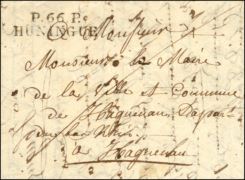 P.66.P.
HUNINGUE
A Monsieur
Monsieur le Maire
de la Ville et Commune
de Haguenau Depart
du Bas Rhin
a Haguenau